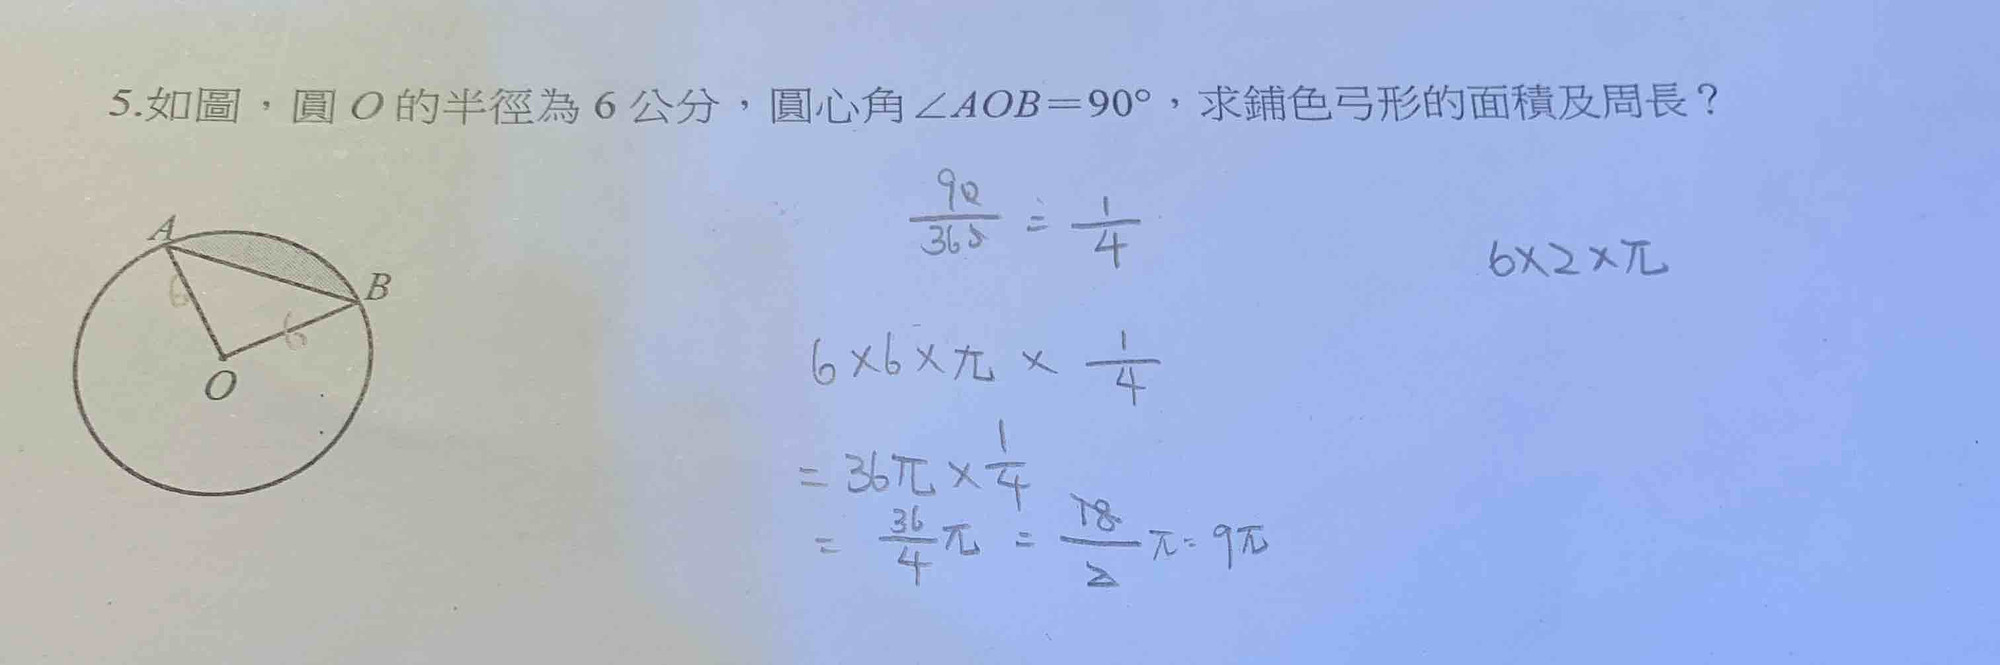 5.如圖，圓 O 的半徑為 6 公分，圓心角∠AOB＝90°，求鋪色弓形的面積及周長？
90/360 = 1/4
6×2×π
A
B
6
6
O
6×6×π × 1/4
= 36π × 1/4
= 36/4 π = 18/2 π = 9π